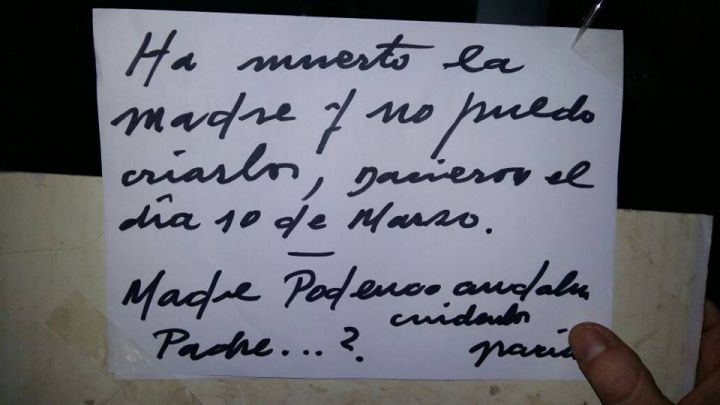 Ha muerto la
madre y no puedo
criarlos, nacieron el
día 10 de Marzo.
—
Madre Podenco andaluz
cuidarlos
Padre...?.